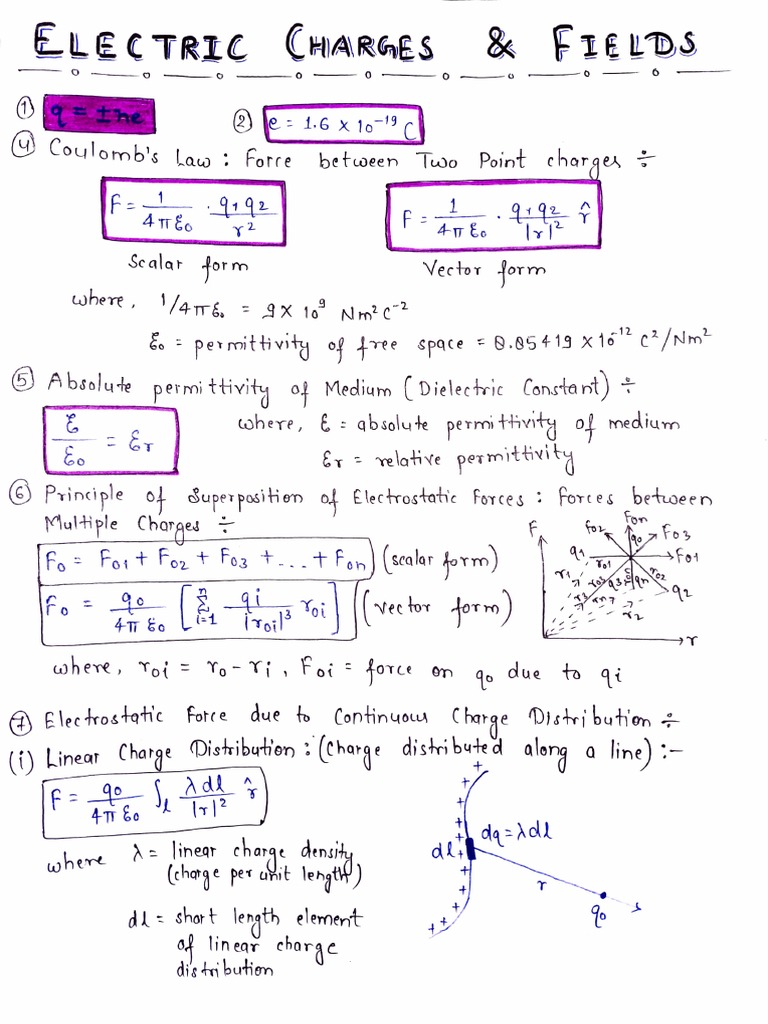 ELECTRIC CHARGES & FIELDS
① q = ±ne ② e = 1.6 × 10⁻¹⁹ C
④ Coulomb's Law : Force between Two Point charges ÷
F = 1/4πε₀ · q₁q₂/r² F = 1/4πε₀ · q₁q₂/|r|² r̂
Scalar form Vector form
where, 1/4πε₀ = 9 × 10⁹ Nm²C⁻²
ε₀ = permittivity of free space = 8.85419 × 10⁻¹² C²/Nm²
⑤ Absolute permittivity of Medium (Dielectric Constant) ÷
ε/ε₀ = εr where, ε = absolute permittivity of medium
εr = relative permittivity
⑥ Principle of Superposition of Electrostatic Forces : Forces between
Multiple Charges ÷
F₀ = F₀₁ + F₀₂ + F₀₃ + ... + F₀n (scalar form)
F₀ = q₀/4πε₀ [ n Σ i=1 qi/|r₀i|³ r₀i ] (vector form)
F F₀₂ F₀n q₀ F₀₃
q₁ r₀₁ F₀₁
r₁ r₀₃ q₃ qn r₀₂
r₃ rn q₂
r₂
r
where, r₀i = r₀ - ri , F₀i = force on q₀ due to qi
⑦ Electrostatic Force due to Continuous Charge Distribution ÷
(i) Linear Charge Distribution : (Charge distributed along a line) :-
F = q₀/4πε₀ ∫l λdl/|r|² r̂
where λ = linear charge density
(charge per unit length)
dl = short length element
of linear charge
distribution
+ + + + + + + + + + + + + +
dl dq = λdl
r
q₀